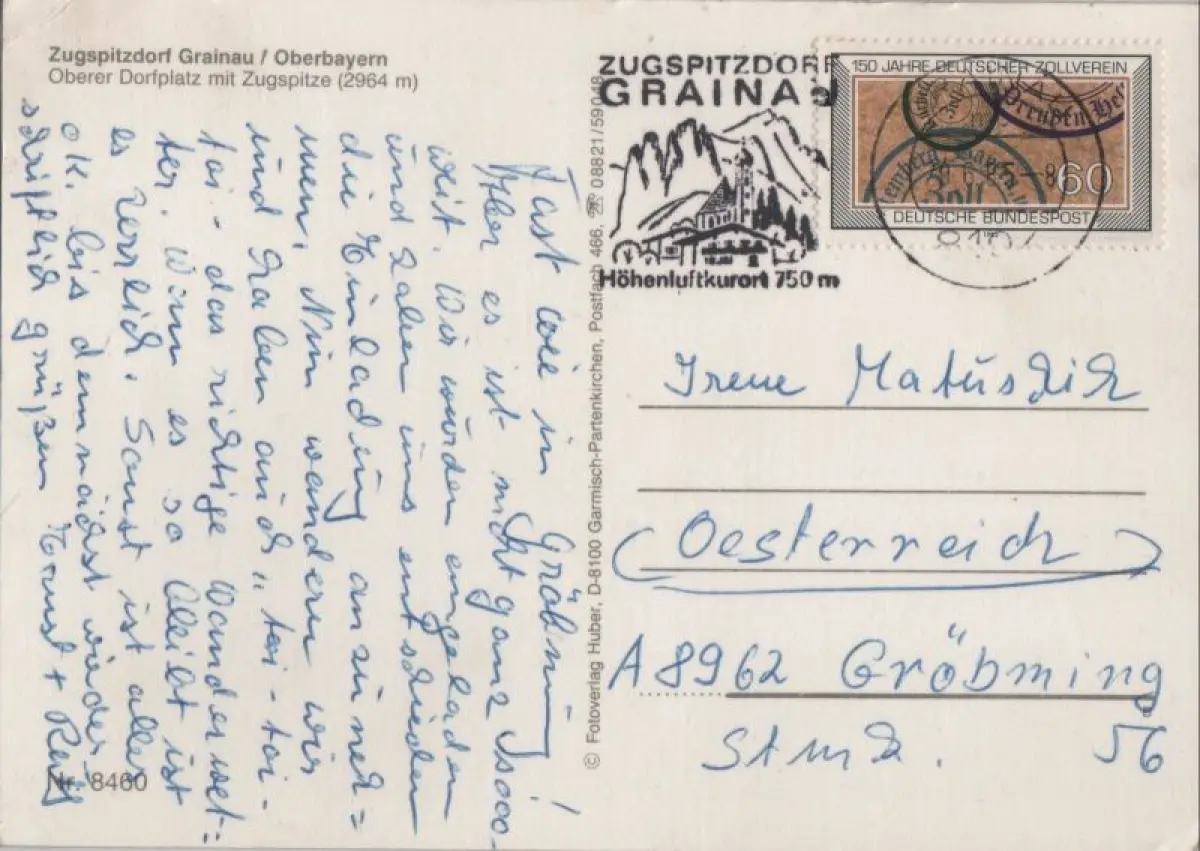 Zugspitzdorf Grainau / Oberbayern
Oberer Dorfplatz mit Zugspitze (2964 m)
Fast wie in Gröbming!
Aber es ist nicht ganz so
weit. Wir wurden eingeladen
und haben uns entschieden
die Einladung anzuneh=
men. Nun wandern wir
und haben auch "toi-toi-
toi- das richtige Wanderwet=
ter. Wenn es so bleibt ist
es herrlich. Sonst ist alles
ok. bis demnächst wieder
schriftlich grüßen Ernst +
Nr. 8460
© Fotoverlag Huber, D-8100 Garmisch-Partenkirchen, Postfach 466, 08821/59048
ZUGSPITZDORF
GRAINAU
Höhenluftkurort 750 m
150 JAHRE DEUTSCHER ZOLLVEREIN
Preußen
Zoll
60
DEUTSCHE BUNDESPOST
Irene Matuschik
(Oesterreich)
A 8962 Gröbming
Stmk. 56